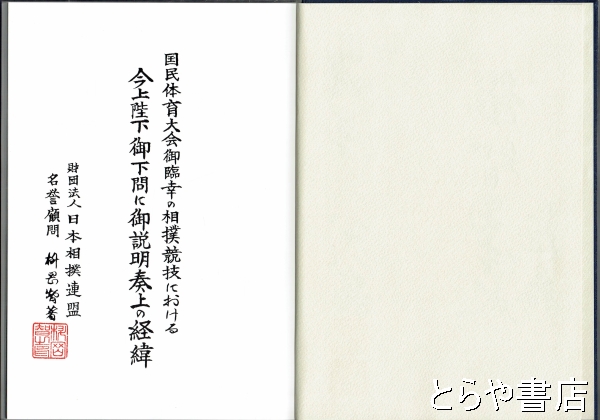 国民体育大会御臨幸の相撲競技における
今上陛下御下問に御説明奏上の経緯
財団法人 日本相撲連盟
名誉顧問 桝岡智著
とらや書店